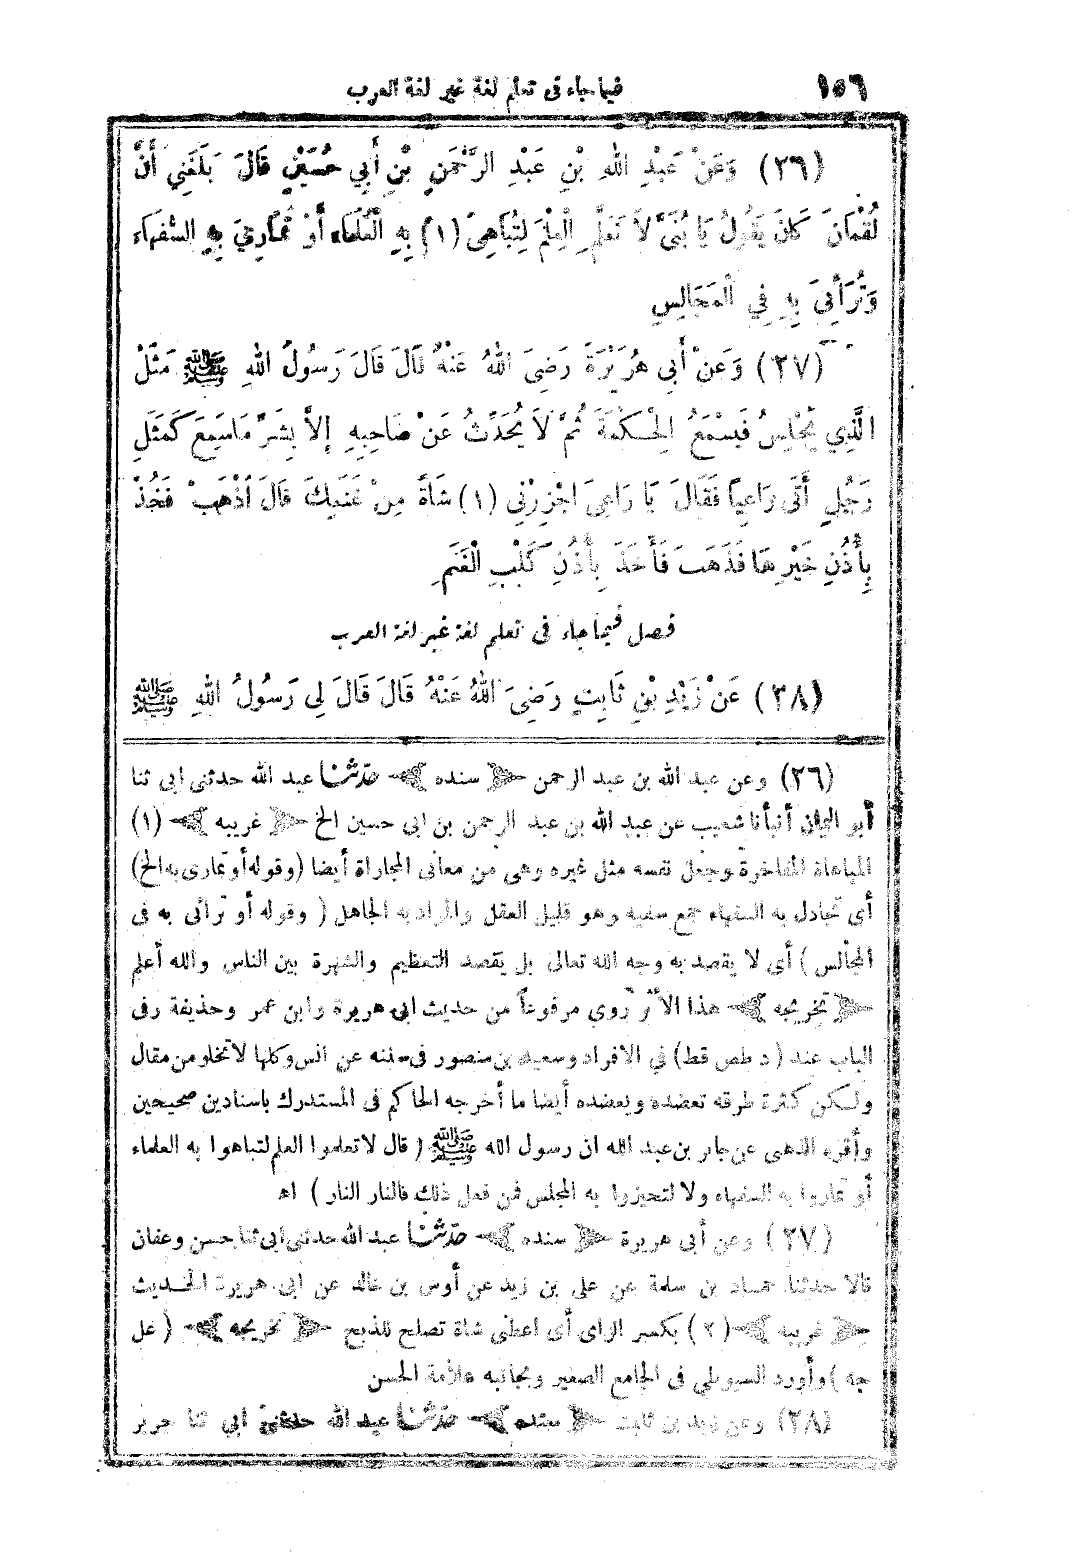 ١٥٦ فيما جاء فى تعلم لغة غير لغة العرب
(٢٦) وَعَنْ عَبْدِ اللهِ بْنِ عَبْدِ الرَّحْمَنِ بْنِ أَبِي حُسَيْنٍ قَالَ بَلَغَنِي أَنَّ
لُقْمَانَ كَانَ يَقُولُ يَا بُنَيَّ لاَ تَعَلَّمِ الْعِلْمَ لِتُبَاهِيَ (١) بِهِ الْعُلَمَاءَ أَوْ تُمَارِيَ بِهِ السُّفَهَاءَ
وَتُرَائِيَ بِهِ فِي الْمَجَالِسِ
(٢٧) وَعَنْ أَبِي هُرَيْرَةَ رَضِيَ اللهُ عَنْهُ قَالَ قَالَ رَسُولُ اللهِ ﷺ مَثَلُ
الَّذِي يَجْلِسُ فَيَسْمَعُ الْحِكْمَةَ ثُمَّ لاَ يُحَدِّثُ عَنْ صَاحِبِهِ إِلاَّ بِشَرِّ مَا سَمِعَ كَمَثَلِ
رَجُلٍ أَتَى رَاعِيًا فَقَالَ يَا رَاعِيَ اجْزِرْنِي (١) شَاةً مِنْ غَنَمِكَ قَالَ اذْهَبْ فَخُذْ
بِأُذُنِ خَيْرِهَا فَذَهَبَ فَأَخَذَ بِأُذُنِ كَلْبِ الْغَنَمِ
فصل فيما جاء فى تعلم لغة غير لغة العرب
(٢٨) عَنْ زَيْدِ بْنِ ثَابِتٍ رَضِيَ اللهُ عَنْهُ قَالَ قَالَ لِي رَسُولُ اللهِ ﷺ
(٢٦) وعن عبد الله بن عبد الرحمن ﴿ سنده ﴾ حدّثنا عبد الله حدثنى ابى ثنا
أبو اليمان أنبأنا شعيب عن عبد الله بن عبد الرحمن بن ابى حسين الخ ﴿ غريبه ﴾ (١)
المباهاة المفاخرة وجعل نفسه مثل غيره وهى من معانى المجاراة أيضا (وقوله أو تمارى به الخ)
أى تجادل به السفهاء جمع سفيه وهو قليل العقل والمراد به الجاهل ( وقوله أو ترائى به فى
المجالس ) أى لا يقصد به وجه الله تعالى بل يقصد التعظيم والشهرة بين الناس والله أعلم
﴿ تخريجه ﴾ هذا الأثر روي مرفوعاً من حديث ابى هريرة وابن عمر وحذيفة وفى
الباب عند ( د طص قط) في الافراد وسعيد بن منصور فى سننه عن انس وكلها لا تخلو من مقال
ولكن كثرة طرقه تعضده ويعضده أيضا ما أخرجه الحاكم فى المستدرك باسنادين صحيحين
وأقره الذهبى عن جابر بن عبد الله ان رسول الله ﷺ ( قال لا تعلموا العلم لتباهوا به العلماء
أو تماروا به السفهاء ولا لتحيزوا به المجلس فمن فعل ذلك فالنار النار ) اهـ
(٢٧ ) وعن أبى هريرة ﴿ سنده ﴾ حدّثنا عبد الله حدثنى ابى ثنا حسن وعفان
قالا حدثنا حماد بن سلمة عن على بن زيد عن أوس بن خالد عن ابى هريرة الحديث
﴿ غريبه ﴾ (٢ ) بكسر الزاى أى اعطنى شاة تصلح للذبح ﴿ تخريجه ﴾ ( عل
جه ) وأورده السيوطى فى الجامع الصغير وبجانبه علامة الحسن
(٢٨) وعن زيد بن ثابت ﴿ سنده ﴾ حدّثنا عبد الله حدثنى ابى ثنا جرير